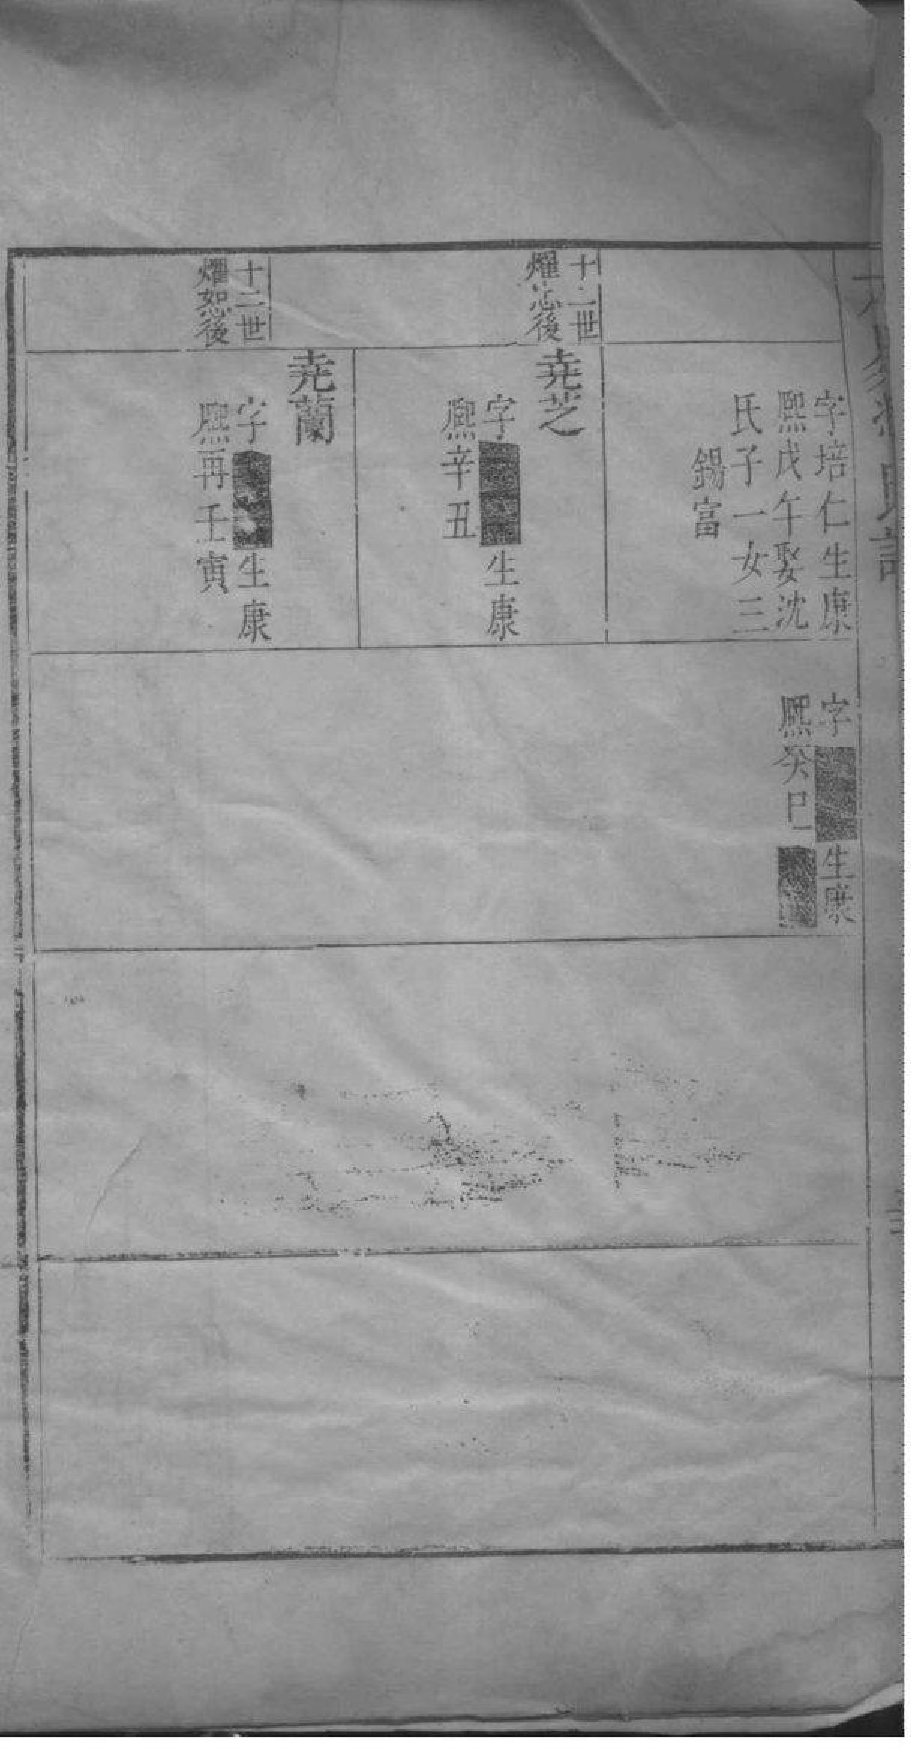 字培仁生康
熙戊午娶沈
氏子一女三
錫富
字
生康
熙癸巳
十二世
燿忠後
堯芝
字
生康
熙辛丑
十二世
燿恕後
堯蘭
字
生康
熙再壬寅